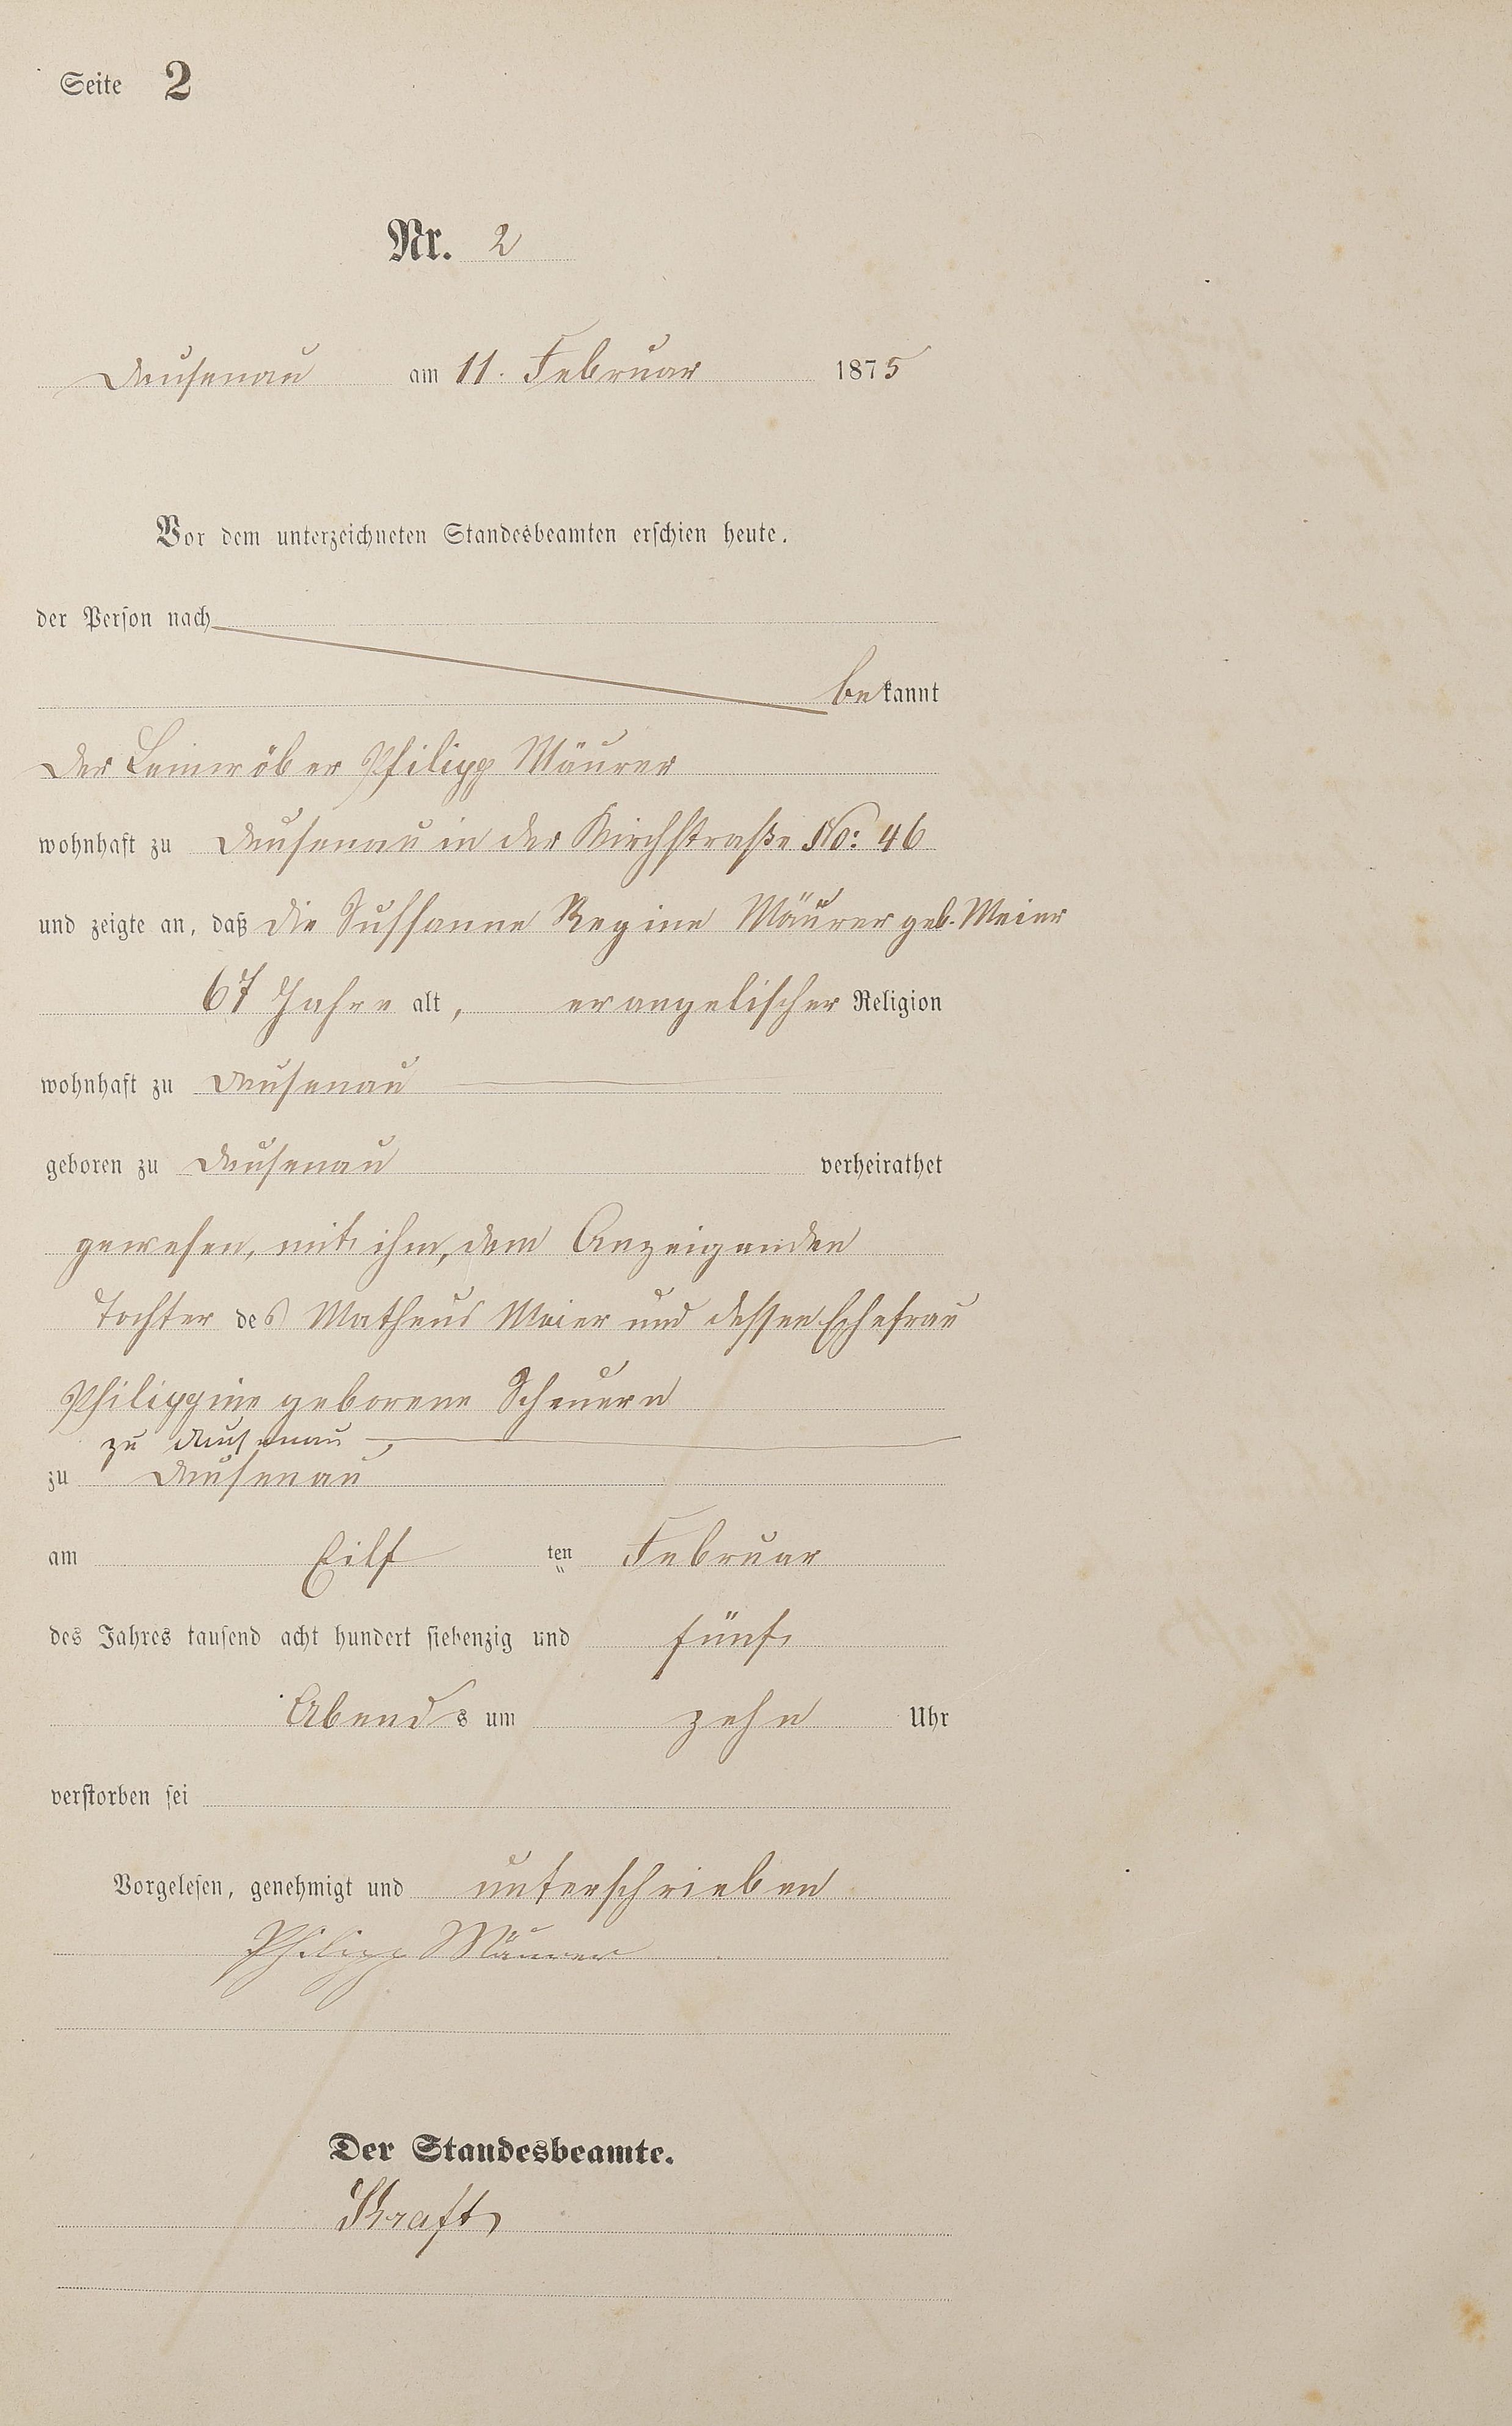 Seite 2
Nr. 2
Dausenau am 11. Februar 1875
Vor dem unterzeichneten Standesbeamten erschien heute.
der Person nach
bekannt
der Philipp Mäurer
wohnhaft zu Dausenau in der Kirchstraße No: 46
und zeigte an, daß die Sussanne Regine Mäurer geb. Meier
67 Jahre alt, evangelischer Religion
wohnhaft zu Dausenau
geboren zu Dausenau verheirathet
gewesen, mit ihm, dem Anzeigenden
Tochter des Matheus Meier und dessen Ehefrau
Philippine geborene Scheuern
zu Dausenau,
zu Dausenau
am Eilf ten Februar
des Jahres tausend acht hundert siebenzig und fünf
Abends um zehn Uhr
verstorben sei
Vorgelesen, genehmigt und unterschrieben
Philipp Mäurer
Der Standesbeamte.
Kraft